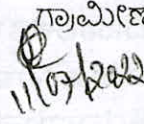 ಗ್ರಾಮೀಣ
11/07/2022